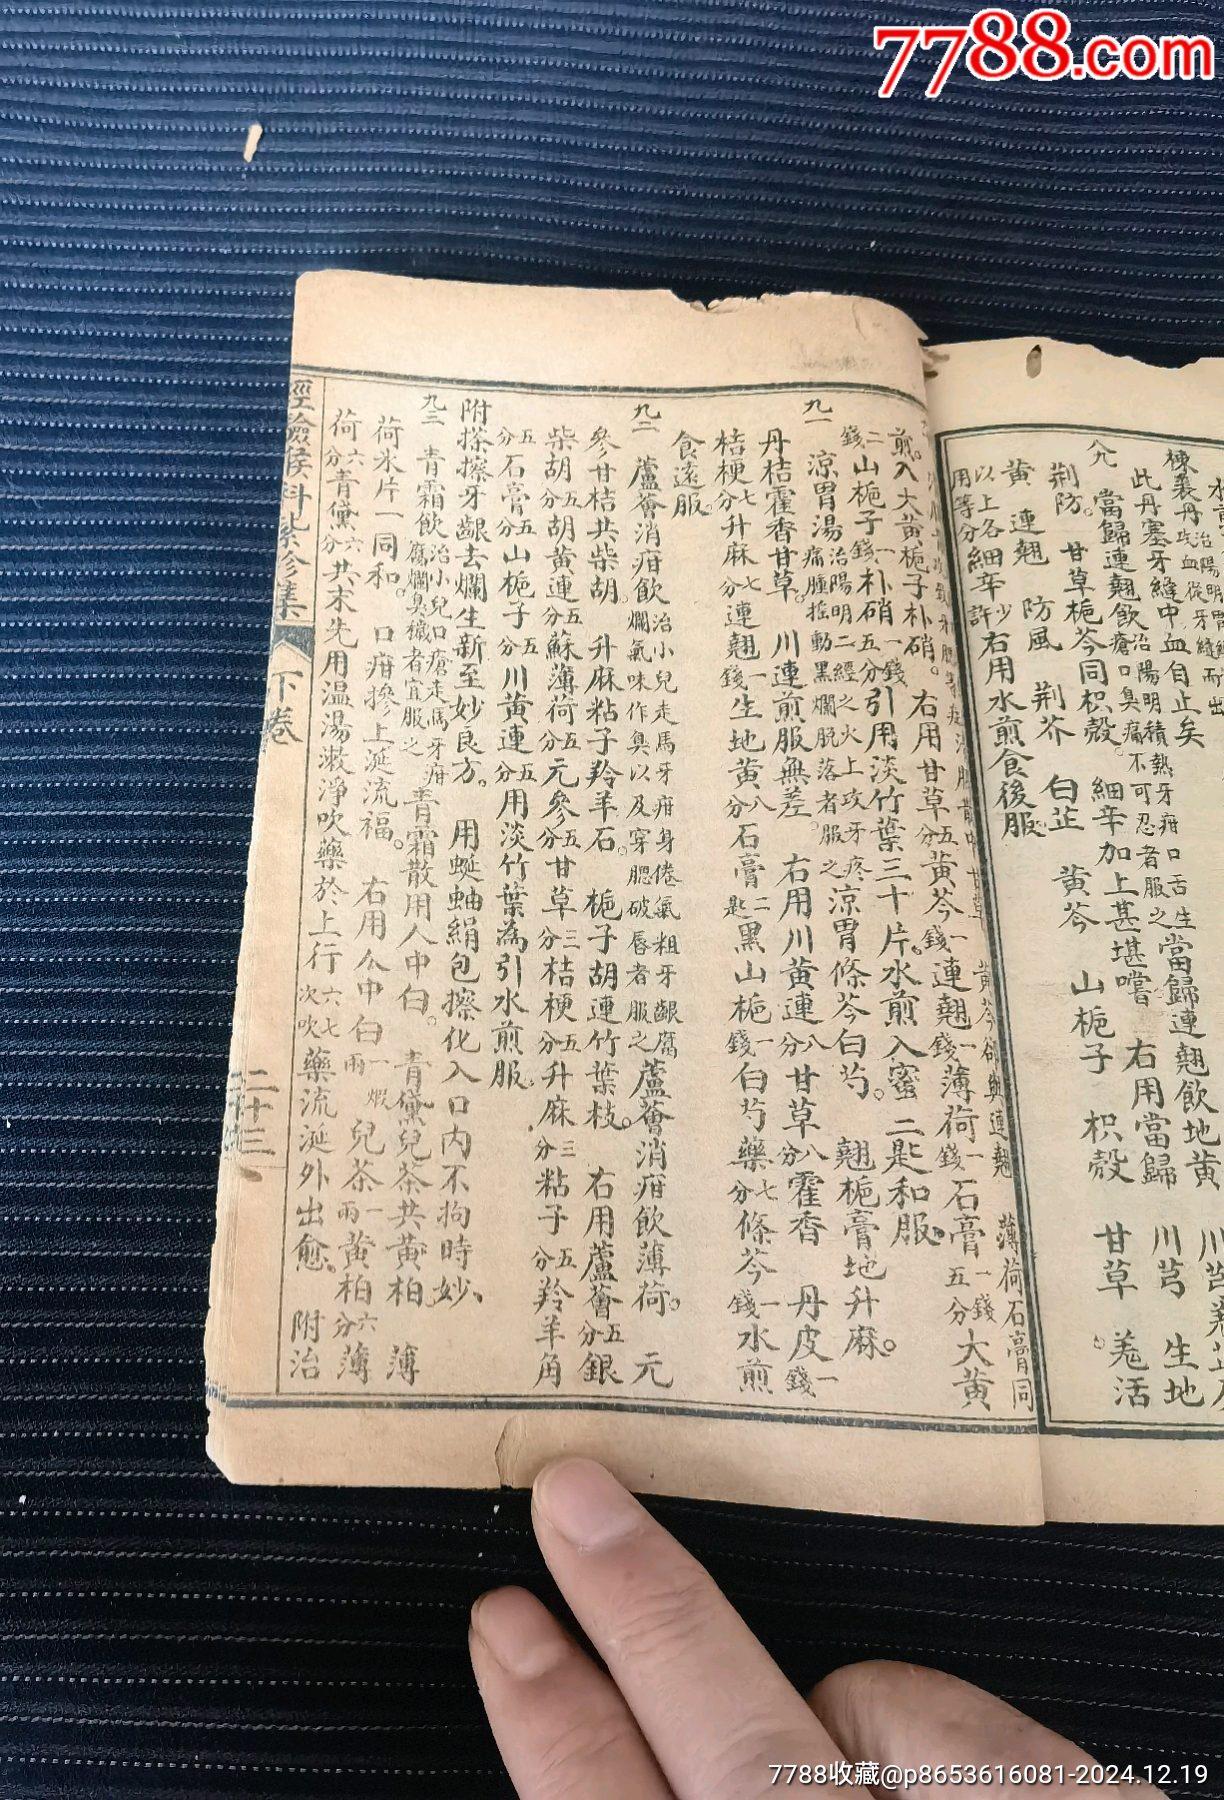 7788.com
棟襄丹
此丹塞牙縫中血自止矣
當歸連翹飲
當歸連翹飲地黃
荊防。甘草梔芩同枳殼。細辛加上甚堪嘗
右用當歸
川芎
生地
黃連
連翹
防風
荊芥
白芷
黃芩
山梔子
枳殼
甘草
羗活
以上各用等分
細辛
少許
右用水煎食後服
薄荷石膏同
煎。入大黃梔子朴硝。右用甘草五分黃芩一錢連翹一錢薄荷一錢石膏一錢五分大黃
二錢山梔子一錢朴硝一錢五分引用淡竹葉三十片。水煎入蜜二匙和服。
九一 涼胃湯治陽明二經之火上攻牙疼痛腫搖動黑爛脫落者服之涼胃條芩白芍。翹梔膏地升麻。
丹桔霍香甘草。川連煎服無差 右用川黃連八分甘草八分霍香 丹皮一錢
桔梗七分升麻七分連翹一錢生地黃八分石膏二匙黑山梔一錢白芍藥七分條芩一錢水煎
食遠服。
九二 蘆薈消疳飲治小兒走馬牙疳身倦氣粗牙齦腐爛氣味作臭以及穿腮破唇者服之蘆薈消疳飲薄荷。元
參甘桔共柴胡。升麻粘子羚羊石。梔子胡連竹葉枝。右用蘆薈五分銀
柴胡五分胡黃連五分蘇薄荷五分元參五分甘草三分桔梗五分升麻三分粘子五分羚羊角
五分石膏五分山梔子五分川黃連五分用淡竹葉為引水煎服。
附搽擦牙齦去爛生新至妙良方。用蜒蚰絹包擦化入口內不拘時妙、
九三 青霜飲治小兒口瘡走馬牙疳腐爛臭穢者宜服之青霜散用人中白。青黛兒茶共黃柏 薄
荷氷片一同和。口疳摻上涎流福。右用人中白一兩煆兒茶一兩黃柏六分薄
荷六分青黛六分共末先用温湯漱淨吹藥於上行六七次吹藥流涎外出愈。附治
經驗喉科紫珍集
下卷
二十三
7788收藏@p8653616081-2024.12.19